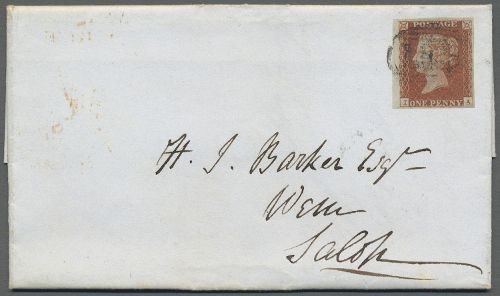 POSTAGE
ONE PENNY A
H. J. Barker Esqr
Wem
Salop